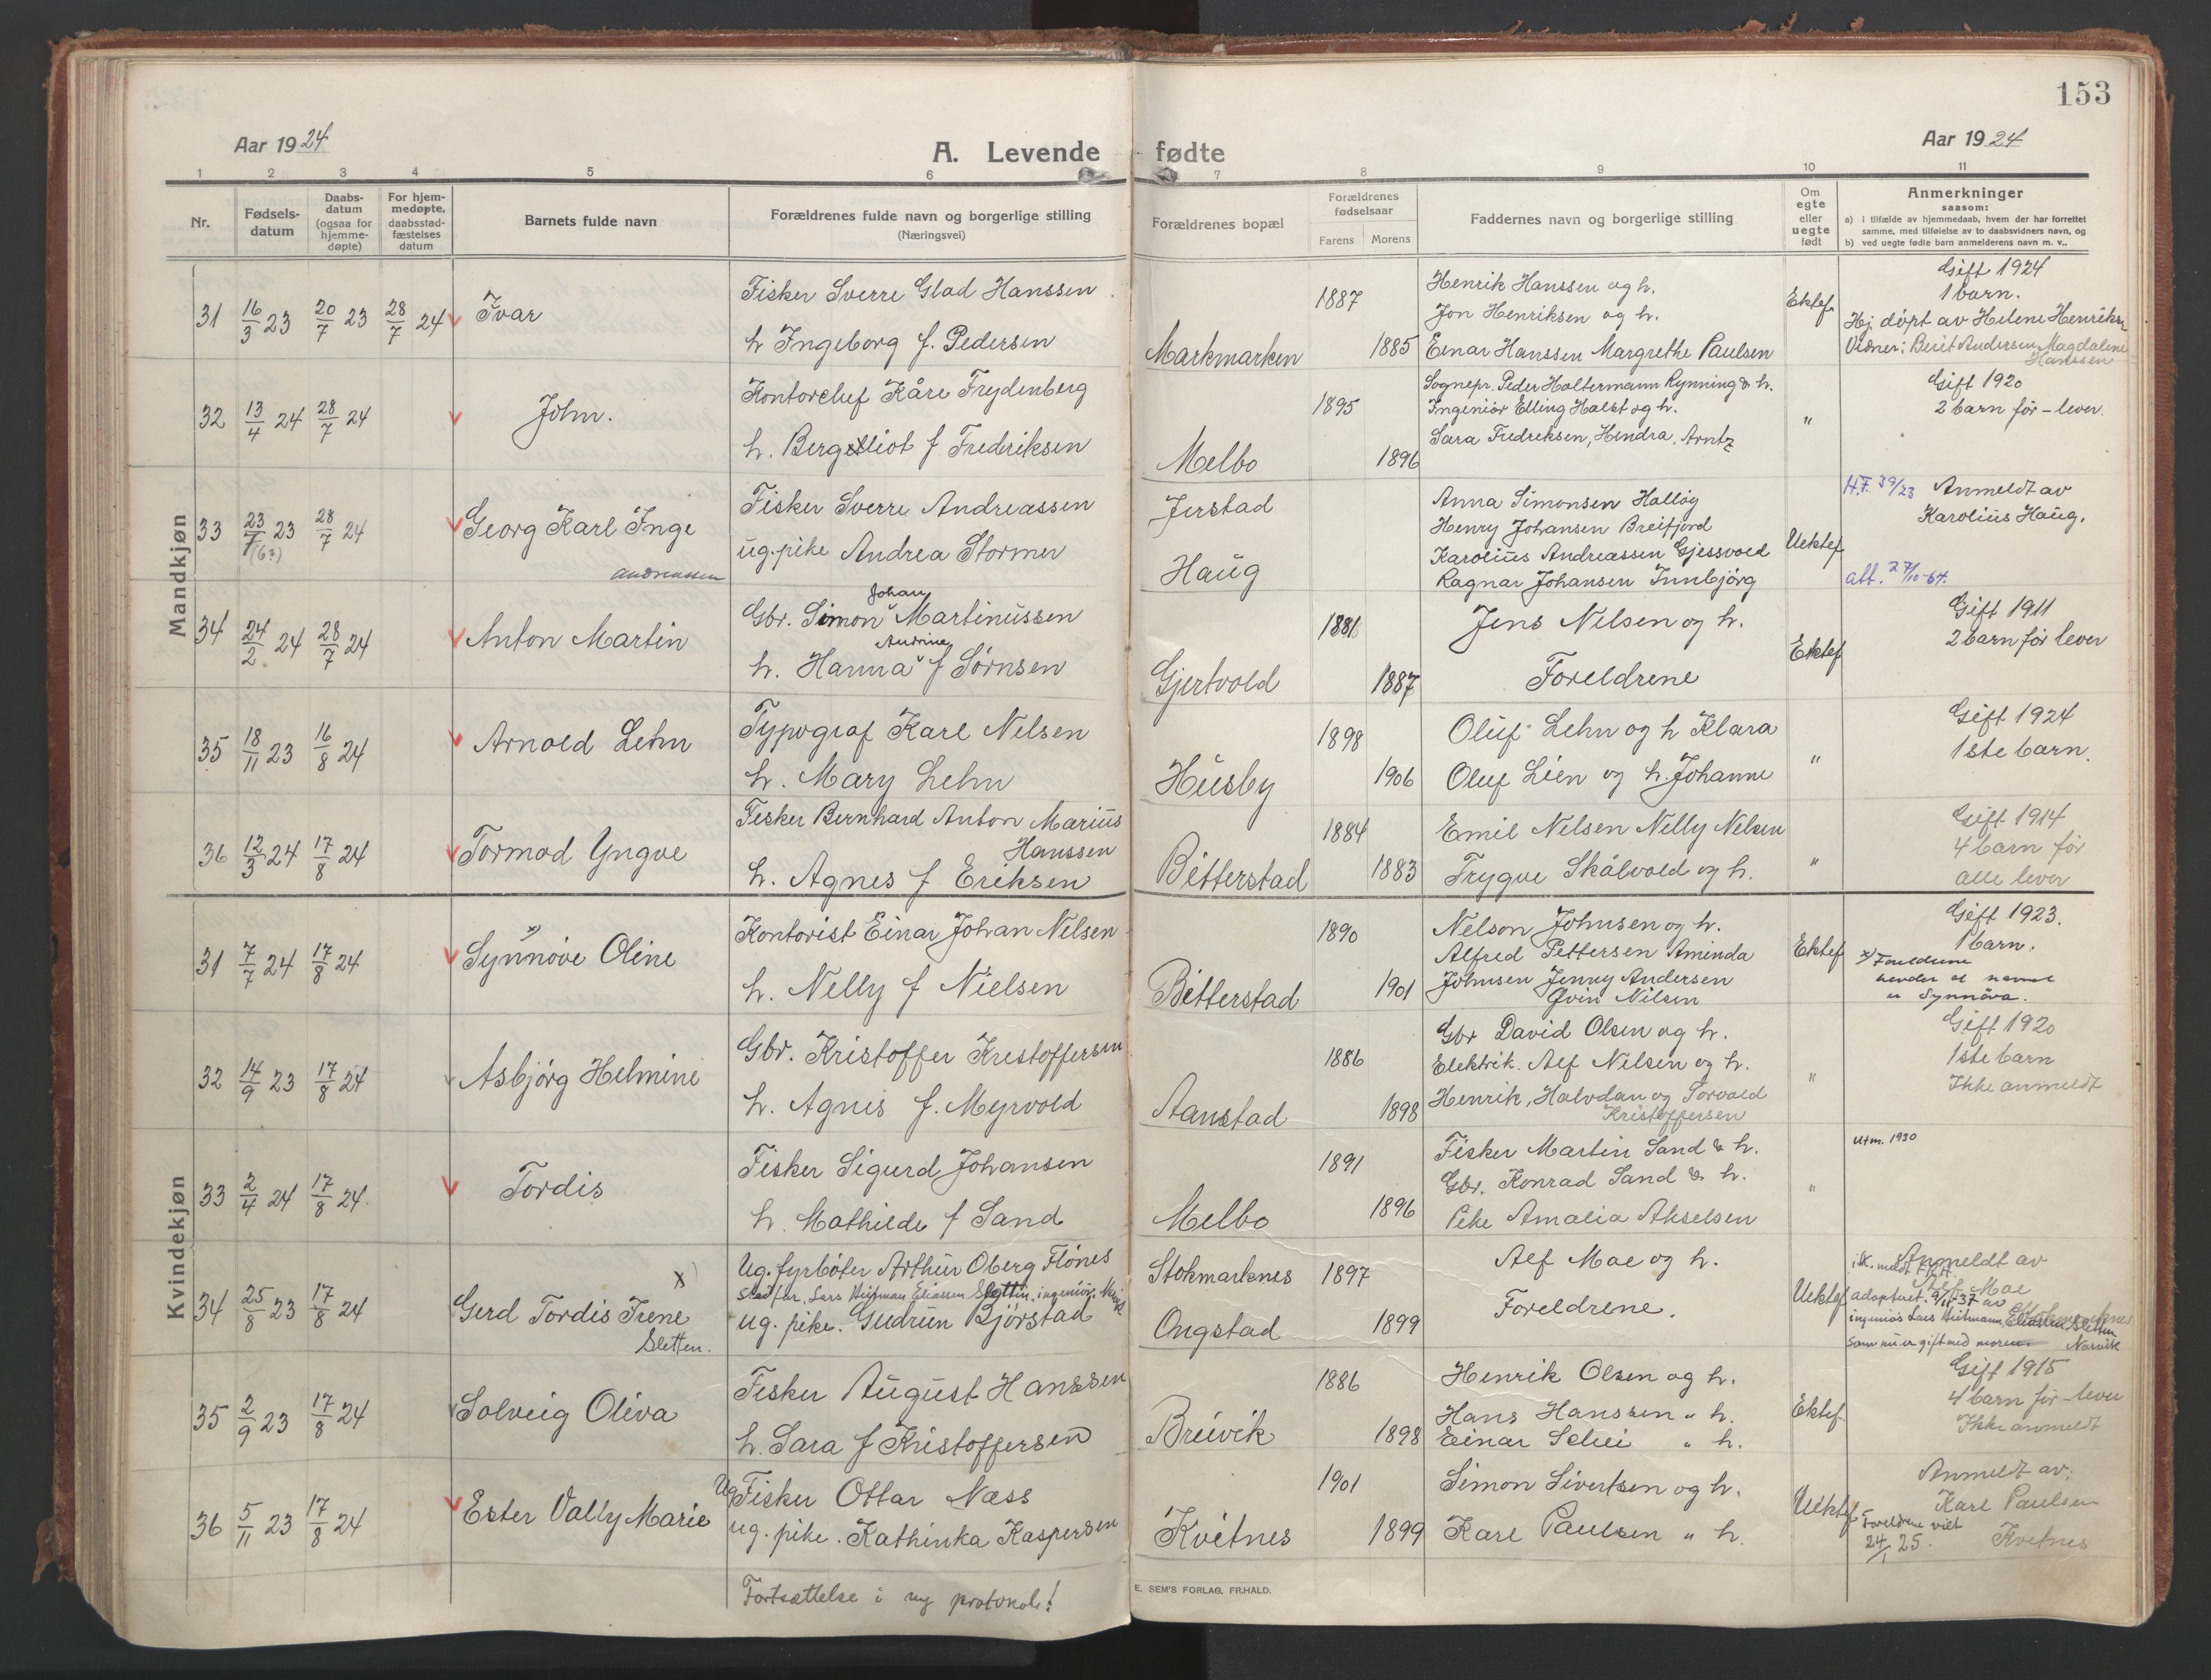 153
Aar 1924
A. Levende fødte
Aar 1924
1 2 3 4 5 6 7 8 9 10 11
Nr.
Fødsels-
datum
Daabs-
datum
(ogsaa for
hjemme-
døpte)
For hjem-
medøpte,
daabsstad-
fæstelses
datum
Barnets fulde navn
Forældrenes fulde navn og borgerlige stilling
(Næringsvei)
Forældrenes bopæl
Forældrenes
fødselsaar
Farens Morens
Faddernes navn og borgerlige stilling
Om
egte
eller
uegte
født
Anmerkninger
saasom:
a) i tilfælde av hjemmedaab, hvem der har forrettet
samme, med tilføielse av to daabsvidners navn, og
b) ved uegte fødte barn anmelderens navn m. v..
Mandkjøn
31 16/3 23 20/7 23 28/7 24 Ivar
Fisker Sverre Glad Hanssen
h Ingeborg f. Pedersen
Markmarken
1887
1885
Henrik Hanssen og h.
Jon Henriksen og h.
Einar Hanssen Margrethe Paulsen
Ektef
Gift 1924
1 barn.
Hj. döpt av Helene Henriks.
Vidner: Berit Andersen Magdalene
Hanssen
32 13/4 24 28/7 24 John.
Kontorchef Kåre Frydenberg
h. Bergliot f Fredriksen
Melbo
1895
1896
Sognepr. Peder Holtermann Rynning & h.
Ingeniör Elling Holst og h.
Sara Fredriksen, Hendra. Arntz
"
Gift 1920
2 barn för - lever.
33 23/7 23 28/7 24 Georg Karl Inge
(6?)
Andreassen
Fisker Sverre Andreassen
ug. pike Andrea Stormer
Jerstad
Haug
Anna Simonsen Hallöy
Henry Johansen Breifjord
Karolius Andreassen Gjessvold
Ragnar Johansen Innbjörg
Uektef
H.F. 39/23 Anmeldt av
Karolius Haug.
att. 27/10-64.
34 24/2 24 28/7 24 Anton Martin
Johan
Gbr. Simon Martinussen
Andrine
h. Hanna f Sørnsen
Gjertvold
1881
1887
Jens Nilsen og h.
Foreldrene
Ektef
Gift 1911
2 barn för lever
35 18/11 23 16/8 24 Arnold Lehn
Typograf Karl Nilsen
h. Mary Lehn
Husby
1898
1906
Oluf Lehn og h Klara
Oluf Lien og h. Johanne
"
Gift 1924
1ste barn.
36 12/3 24 17/8 24 Tormod Yngve
Fisker Bernhard Anton Marius
Hanssen
h. Agnes f Eriksen
Bitterstad
1884
1883
Emil Nilsen Nelly Nelsen
Trygve Skålvold og h.
"
Gift 1914
4 barn för
alle lever
Kvindekjøn
31 7/7 24 17/8 24 Synnöve Oline
Kontorist Einar Johan Nilsen
h. Nelly f Nielsen
Bitterstad
1890
1901
Nelson Johnsen og h.
Alfred Pettersen Aminda
Johnsen Jenny Andersen
Qvin Nilsen
Ektef
Gift 1923.
1 barn.
x) Foreldrene
at navnet
er Synnöva.
32 14/9 23 17/8 24 Asbjörg Helmine
Gbr. Kristoffer Kristoffersen
h. Agnes f. Myrvold
Aanstad
1886
1898
Gbr David Olsen og h.
Elektrik. Alf Nilsen og h.
Henrik, Halvdan og Torvald
Kristoffersen
"
Gift 1920
1ste barn
Ikke anmeldt
33 2/4 24 17/8 24 Tordis
Fisker Sigurd Johansen
h. Mathilde f Sand
Melbo
1891
1896
Fisker Martin Sand & h.
Gbr. Konrad Sand & h.
Pike Amalia Akselsen
"
Utm. 1930
34 25/8 23 17/8 24 Gerd Tordis Irene
x)
Sletten.
Ug. fyrböter Arthur Oberg Flönes
Stedfar. Lars Heitman Eliassen Sletten, ingeniör, Narvik
ug. pike. Gudrun Björstad
Stokmarknes
Ongstad
1897
1899
Alf Moe og h.
Foreldrene.
Uektef
Anmeldt av
Alf Moe
adoptert 9/11-37 av
ingeniör Lars Heitmann Eliassen Sletten
som nu er gift med moren. Narvik
35 2/9 23 17/8 24 Solveig Oliva
Fisker August Hanssen
h. Sara f Kristoffersen
Breivik
1886
1898
Henrik Olsen og h.
Hans Hanssen " h.
Einar Schei " h.
Ektef
Gift 1915
4 barn för - lever
Ikke anmeldt
36 5/11 23 17/8 24 Ester Vally Marie
Ug Fisker Ottar Næss
ug. pike. Kathinka Kaspersen
Kvitnes
1901
1899
Simon Sivertsen og h.
Karl Paulsen " h.
Uektef
Anmeldt av:
Karl Paulsen
Kvitnes
Foreldrene viet
24/1 25.
Fortsættelse i ny protokol!
E. SEM'S FORLAG, FR.HALD.